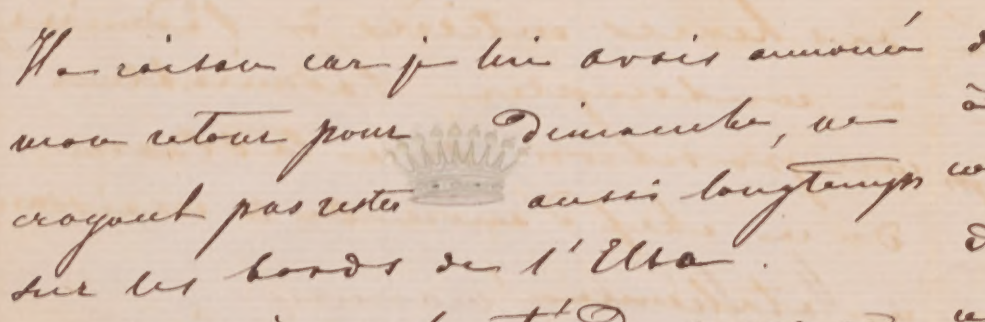 Il a raison car je lui avais annoncé
mon retour pour Dimanche, ne
croyant pas rester aussi longtemps
sur les bords de l'Elbe.